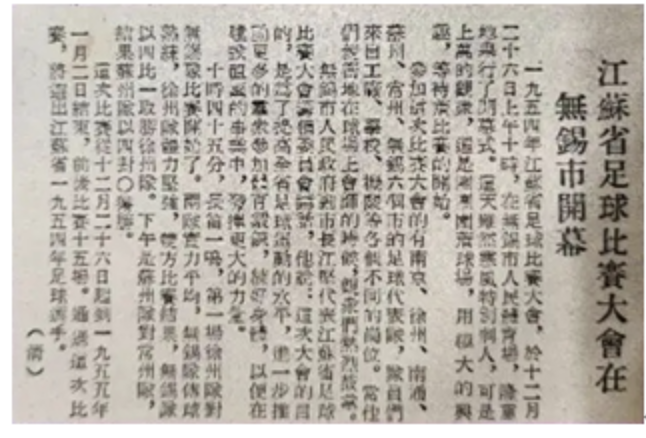 江蘇省足球比賽大會在
無錫市開幕
一九五四年江蘇省足球比賽大會，於十二月
二十六日上午十時，在無錫市人民體育場，隆重
地舉行了開幕式。這天雖然寒風特別刺人，可是
上萬的觀衆，還是團團圍着球場，用極大的興
趣，等待着比賽的開始。
參加這次比賽大會的有南京、徐州、南通、
蘇州、常州、無錫六個市的足球代表隊，隊員們
來自工廠、學校、機關等各個不同的崗位。當他
們英勇地在球場上會師的時候，觀衆們熱烈鼓掌。
無錫市人民政府副市長江堅代表江蘇省足球
比賽大會籌備委員會講話，他說：這次大會的目
的，是爲了提高全省足球運動的水平，進一步推
動更多的羣衆參加體育鍛鍊，鍛好身體，以便在
建設祖國的事業中，發揮更大的力量。
十時四十五分，長笛一鳴，第一場徐州隊對
無錫隊比賽開始了。兩隊實力平均，無錫隊傳球
熟練，徐州隊體力堅強，雙方比賽結果，無錫隊
以四比一取勝徐州隊。下午是蘇州隊對常州隊，
結果蘇州隊以四對〇獲勝。
這次比賽從十二月二十六日起到一九五五年
一月二日結束，前後比賽十五場。通過這次比
賽，將選出江蘇省一九五四年足球選手。